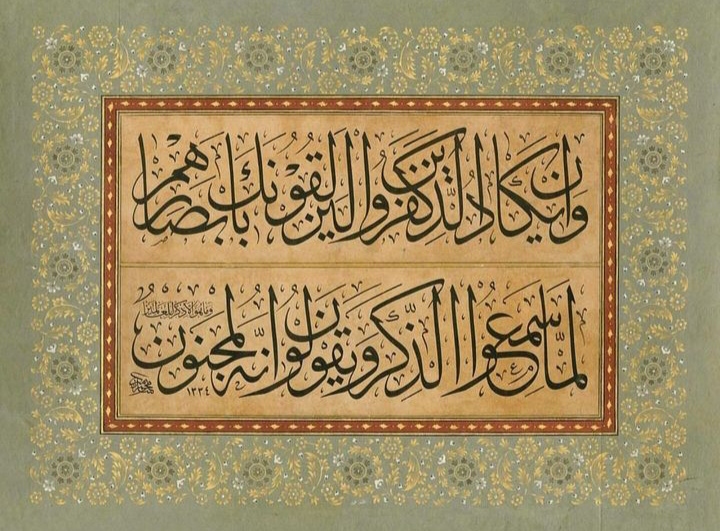 وَإِن يَكَادُ الَّذِينَ كَفَرُوا لَيُزْلِقُونَكَ بِأَبْصَارِهِمْ
لَمَّا سَمِعُوا الذِّكْرَ وَيَقُولُونَ إِنَّهُ لَمَجْنُونٌ
وَمَا هُوَ إِلَّا ذِكْرٌ لِلْعَالَمِينَ
١٣٣٤